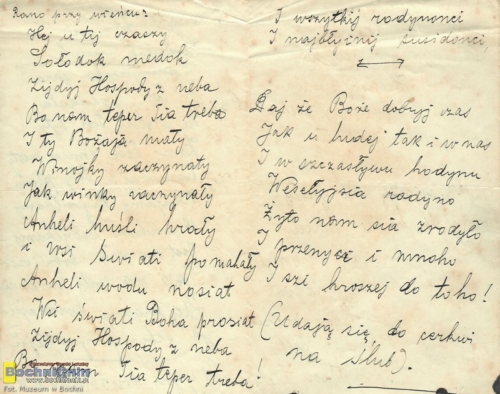 Rano przy wieńcu:
Hej u tij czaszy
Sołodok medok
Zijdyj Hospody z neba
Bo nam teper Tia treba
I ty Bożaja maty
Winojky zaczynaty
Jak winky zaczynały
Anheli huśli hrały
i wsi świati pomahały
Anheli wodu nosiat
Wsi świati Boha prosiat
Zijdyj Hospody z neba
Bo nam Tia teper treba!
I wszytkij rodynonci
I najbłyżnij susidonci,
Daj że Boże dobryj czas
Jak u ludej tak i w nas
I w szczasływu hodynu
Wesełyjsia rodyno
Żyto nam sia zrodyło
I przenyci i mnoho
I szi hroszej do toho!
(Udają się do cerkwi
na ślub).
BochniaNin
Fot. Muzeum w Bochni